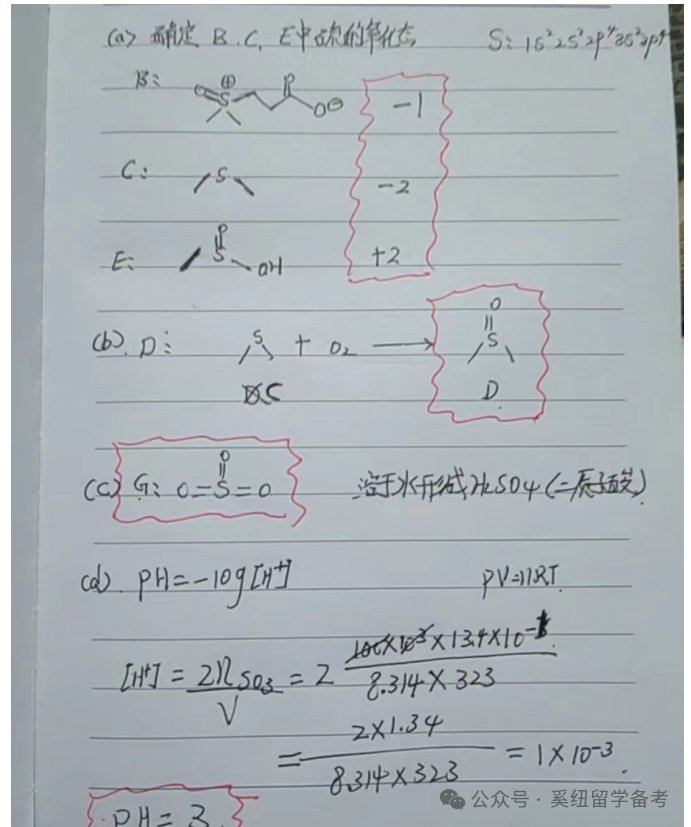 (a) 确定 B.C.E中硫的氧化态 S: 1s²2s²2p⁴3s²3p⁴
B: S ⊕ O O⊖ -1
C: S -2
E: O S OH +2
(b). D: S + O₂ → O S
C D
(c) G: O=S=O O 溶于水形成H₂SO₄(二质子酸)
(d). PH=-log[H⁺] PV=nRT.
[H⁺] = 2n SO₃ / V = 2 100×10³×13.4×10⁻¹ / 8.314×323
= 2×1.34 / 8.314×323 = 1×10⁻³.
PH=3
公众号·奚纽留学备考